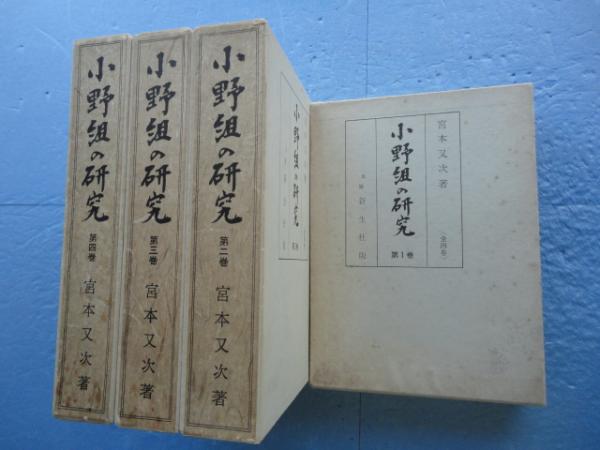 小野組の研究 第四巻 宮本又次著
小野組の研究 第三巻 宮本又次著
小野組の研究 第二巻 宮本又次著
小野組の研究
宮本又次著
〈全四巻〉
小野組の研究
第1巻
新生社版